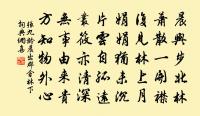 晨興步北林
蕭散一開襟
復見林上月
娟娟猶未沉
片雲自孤遠
叢筱亦清深
無事由來貴
方知物外心
張九齡晨出郡舍林下
詞典網